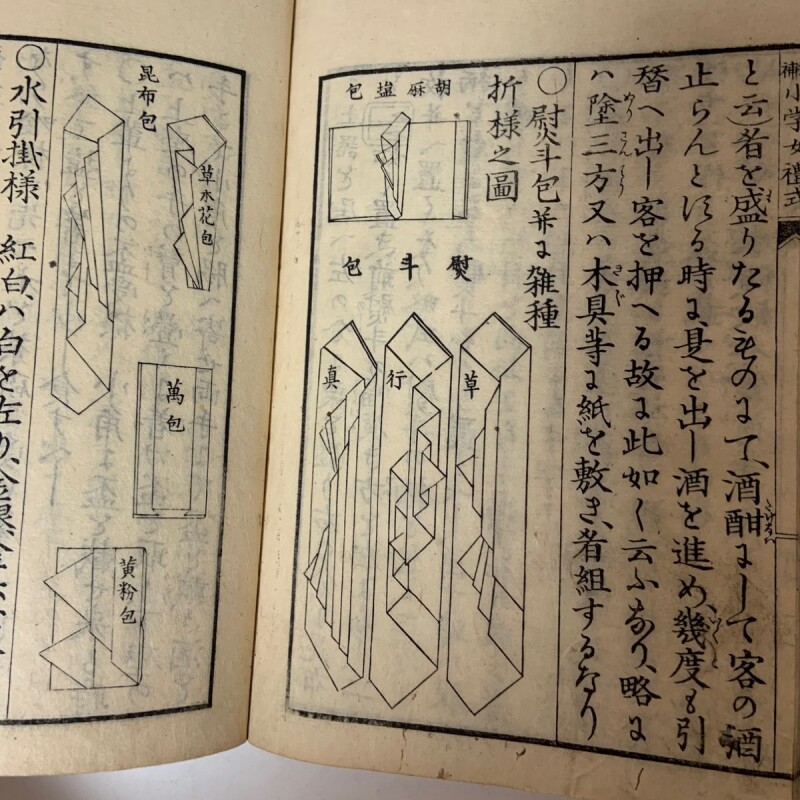 小学女禮式
と云者を盛りたるものにて、酒酣にして客の酒
止らんとする時に、是を出し酒を進め、幾度も引
替へ出し客を押へる故に此如く云ふなり、略に
ハ塗三方又ハ木具等に紙を敷き、肴組するなり
○熨斗包并に雑種
折様之圖
胡麻塩包
熨斗包
草
行
真
草木花包
昆布包
萬包
黄粉包
○水引掛様 紅白ハ白を左り、金銀